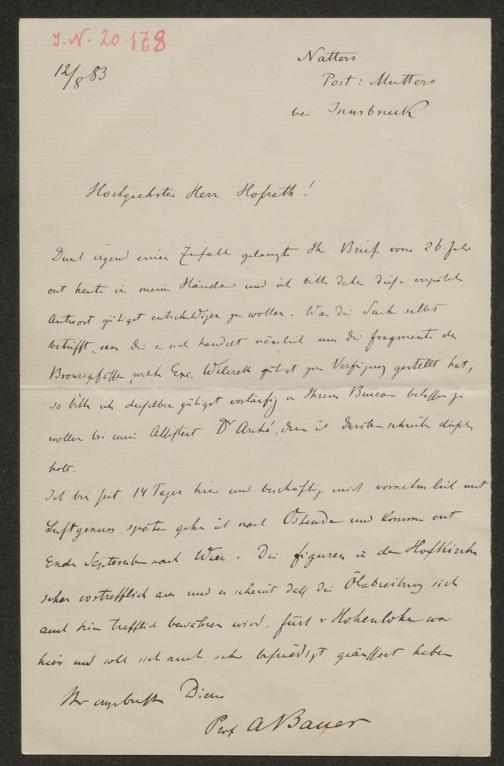 J.N. 20.178
12/8 83
Natters
Post: Mutters
bei Innsbruck
Hochgeehrter Herr Hofrath!
Durch irgend einen Zufall gelangte Ihr Brief vom 26. Juli
erst heute in meine Hände und ich bitte daher diese verspätete
Antwort gütigst entschuldigen zu wollen. Was die Sache selbst
betrifft, um die es sich handelt nämlich um die Fragmente der
Bronzegefässe, welche Exc. Wilczek gütigst zur Verfügung gestellt hat,
so bitte ich dieselben gütigst vorläufig in Ihrem Bureau belassen zu
wollen bis mein Assistent Dr, dem ich darüber schreibe dieselben
holt.
Ich bin seit 14 Tagen hier und beschäftige mich vornehmlich mit
Luftgenuss später gehe ich nach Ostende und komme erst
Ende September nach Wien. Die Figuren in der Hofkirche
sehen vortrefflich aus und es scheint daß die Ölabreibung sich
auch hier trefflich bewähren wird. Fürst v Hohenlohe war
hier und soll sich auch sehr befriedigt geäussert haben
Ihr ergebenster Diener
Prof ABauer